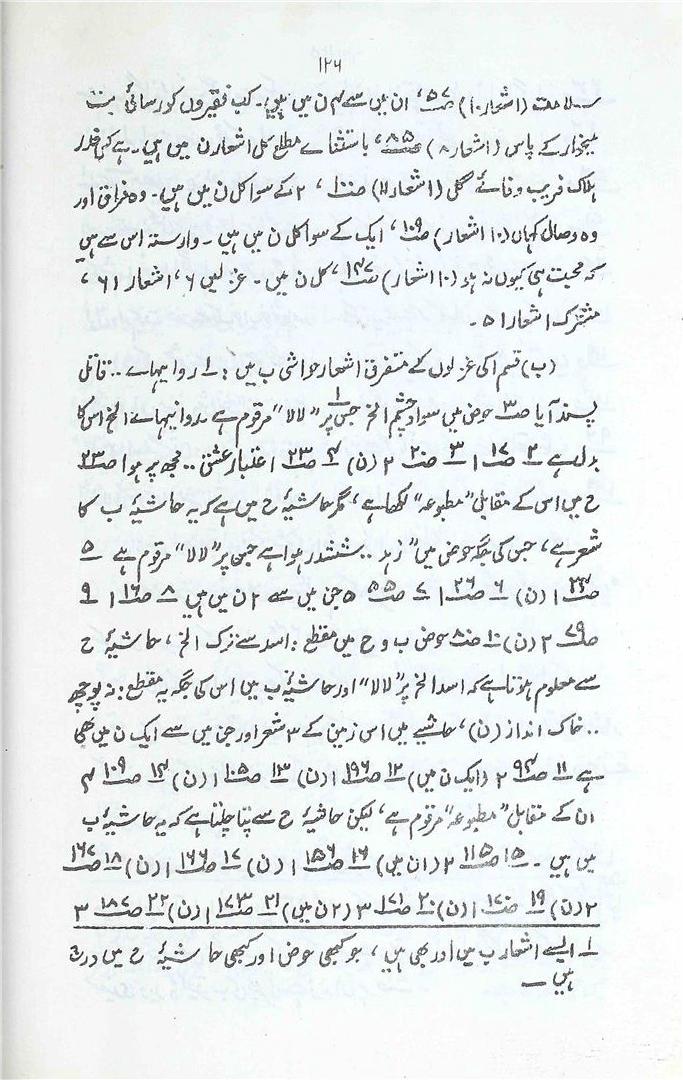 ۱۲۶
سلامت (اشعار۱۰) ص۵۷، ان میں سے ۴ ن میں ہیں۔ کب فقیروں کو رسائی بت
میخوار کے پاس (اشعار ۸) ص۸۵، باستثناے مطلع کل اشعار ن میں ہیں۔ ہے کس قدر
ہلاک فریب وفائے گل (اشعار ۱۱) ص۱۰۰، ۲ کے سوا کل ن میں ہیں۔ وہ فراق اور
وہ وصال کہاں (۱۰ اشعار) ص۱۰۹، ایک کے سوا کل ن میں ہیں۔ وارستہ اس سے ہیں
کہ محبت ہی کیوں نہ ہو (۱۰ اشعار) ص۱۴۷، کل ن میں۔ غزلیں ۶، اشعار ۶۱،
مشترک اشعار ۵۱۔
(ب) قسم ۱ کی غزلوں کے متفرق اشعار حواشی ب میں: ۱ روانیہاے .. قاتل
پسند آیا ص۳ حوض میں سواد چشم الخ جس پر "لالا" مرقوم ہے۔ روانیہاے الخ اس کا
بدل ہے ۲ ص۱۷ ۱ ۳ ص۲۰ ۲ (ن) ۴ ص۲۳ ۱ اعتبار عشق .. مجھ پر ہوا ص۲۳
ح میں اس کے مقابل "مطبوعہ" لکھا ہے، مگر حاشیۂ ح میں ہے کہ یہ حاشیۂ ب کا
شعر ہے، جس کی جگہ حوض میں "زہد .. ششدر ہوا ہے جس پر "لالا" مرقوم ہے ۵
ص۲۴ ۱ (ن) ۶ ص۲۶ ۱ ۷ ص۵۵ ۵ جن میں سے ۲ ن میں ہیں ۸ ص۱۶ ۱ ۹
ص۷۹ ۲ (ن) ۱۰ ص۸۰ حوض ب و ح میں مقطع: اسد سے ترک الخ، حاشیۂ ح
سے معلوم ہوتا ہے کہ اسد الخ پر "لالا" اور حاشیۂ ب میں اس کی جگہ یہ مقطع: نہ پوچھ
.. خاک انداز (ن)، حاشیے میں اس زمین کے ۳ شعر اور جن میں سے ایک ن میں بھی
ہے ۱۱ ص۹۴ ۲ (ایک ن میں) ۱۲ ص۱۹۶ ۱ (ن) ۱۳ ص۱۰۵ ۱ (ن) ۱۴ ص۱۰۹ ۴
ان کے مقابل "مطبوعہ" مرقوم ہے، لیکن حاشیۂ ح سے پتا چلتا ہے کہ یہ حاشیۂ ب
میں ہیں۔ ۱۵ ص۱۱۵ ۲ (ن میں) ۱۶ ص۱۵۶ ۱ (ن) ۱۷ ص۱۶۶ ۱ (ن) ۱۸ ص۱۶۷
۲ (ن) ۱۹ ص۱۷۰ ۱ (ن) ۲۰ ص۱۷۱ ۳ (۲ ن میں) ۲۱ ص۱۷۳ ۱ (ن) ۲۲ ص۱۸۷ ۳
۱ ایسے اشعار ب میں اور بھی ہیں، جو کبھی حوض اور کبھی حاشیۂ ح میں درج
ہیں۔